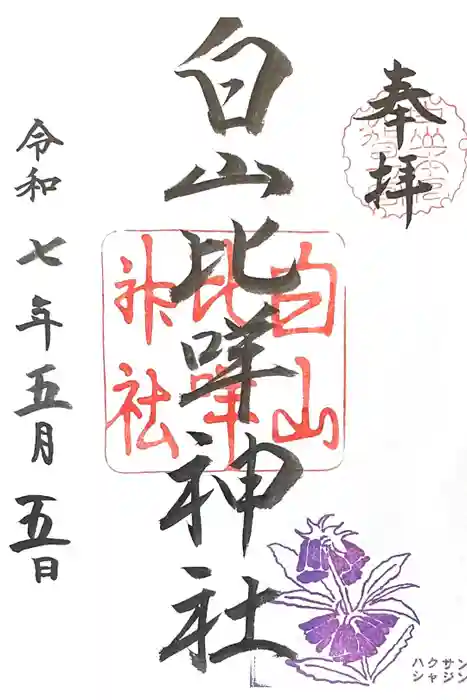 奉拝
白山比咩神社
白山
比咩
神社
令和七年五月五日
ハクサン
シャジン